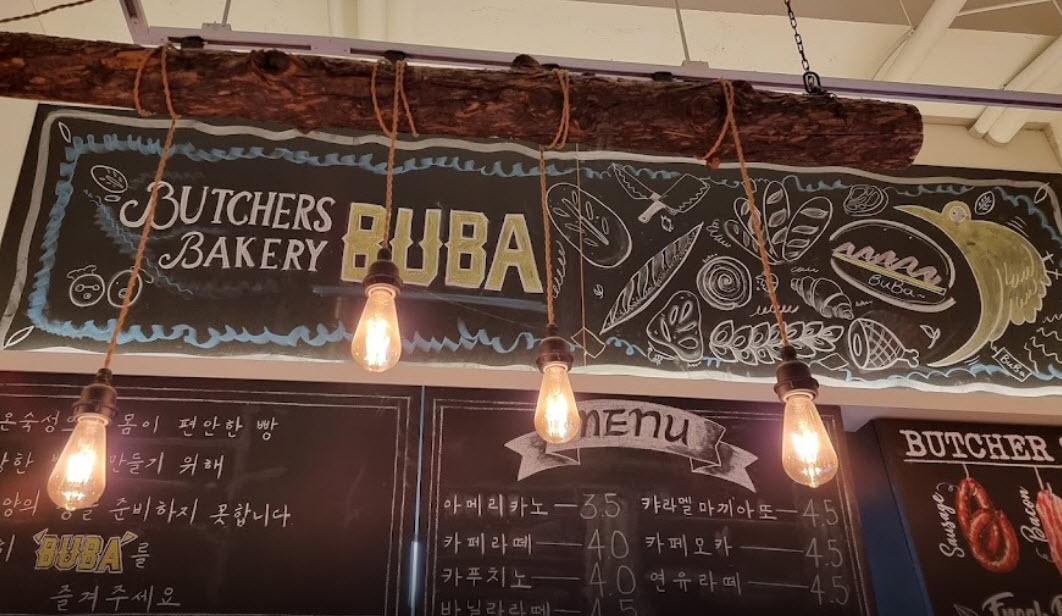 BUTCHERS
BAKERY
BUBA
BuBa
BuBa
몸이 편안한 빵
만들기 위해
준비하지 못합니다.
"BUBA"를
즐겨주세요
MENU
아메리카노 — 3.5
카페라떼 — 4.0
카푸치노 — 4.0
바닐라라떼 — 4.5
캬라멜마끼아또 — 4.5
카페모카 — 4.5
연유라떼 — 4.5
BUTCHER
Sausage
Bacon